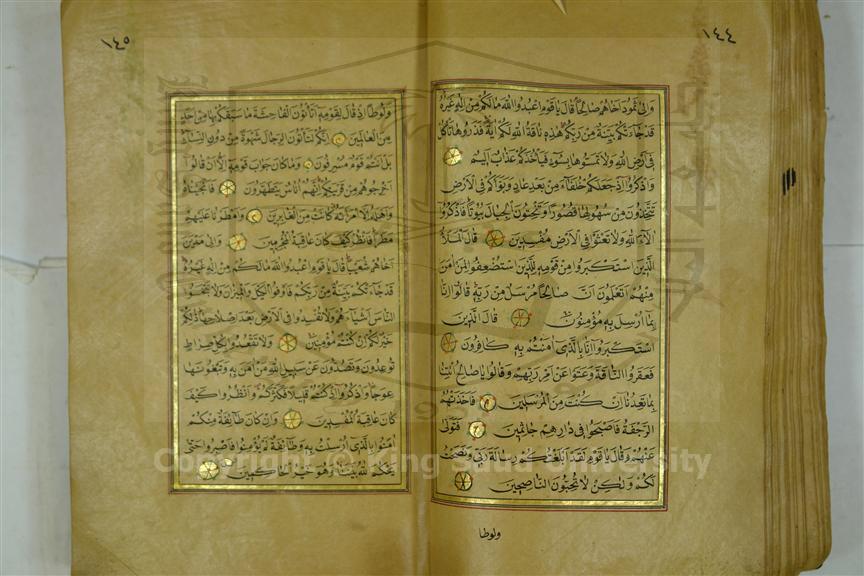 ١٤٤
والى ثمود اخاهم صالحا قال يا قوم اعبدوا الله مالكم من اله غيره
قد جاءتكم بينة من ربكم هذه ناقة الله لكم اية فذروها تاكل
فى ارض الله ولا تمسوها بسوء فياخذكم عذاب اليم
واذكروا اذ جعلكم خلفاء من بعد عاد وبواكم فى الارض
تتخذون من سهولها قصورا وتنحتون الجبال بيوتا فاذكروا
الاء الله ولا تعثوا فى الارض مفسدين قال الملأ
الذين استكبروا من قومه للذين استضعفوا لمن امن
منهم اتعلمون ان صالحا مرسل من ربه قالوا انا
بما ارسل به مؤمنون قال الذين
استكبروا انا بالذى امنتم به كافرون
فعقروا الناقة وعتوا عن امر ربهم وقالوا يا صالح ائتنا
بما تعدنا ان كنت من المرسلين فاخذتهم
الرجفة فاصبحوا فى دارهم جاثمين فتولى
عنهم وقال يا قوم لقد ابلغتكم رسالة ربى ونصحت
لكم ولكن لا تحبون الناصحين
ولوطا
١٤٥
ولوطا اذ قال لقومه اتاتون الفاحشة ما سبقكم بها من احد
من العالمين انكم لتاتون الرجال شهوة من دون النساء
بل انتم قوم مسرفون وما كان جواب قومه الا ان قالوا
اخرجوهم من قريتكم انهم اناس يتطهرون فانجيناه
واهله الا امراته كانت من الغابرين وامطرنا عليهم
مطرا فانظر كيف كان عاقبة المجرمين والى مدين
اخاهم شعيبا قال يا قوم اعبدوا الله مالكم من اله غيره
قد جاءتكم بينة من ربكم فاوفوا الكيل والميزان ولا تبخسوا
الناس اشياءهم ولا تفسدوا فى الارض بعد اصلاحها ذلكم
خير لكم ان كنتم مؤمنين ولا تقعدوا بكل صراط
توعدون وتصدون عن سبيل الله من امن به وتبغونها
عوجا واذكروا اذ كنتم قليلا فكثركم وانظروا كيف
كان عاقبة المفسدين وان كان طائفة منكم
امنوا بالذى ارسلت به وطائفة لم يؤمنوا فاصبروا حتى
يحكم الله بيننا وهو خير الحاكمين
Copyright © King Saud University